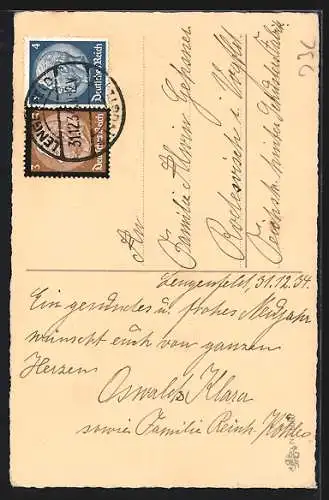 4
Deutsches Reich
3
Deutsches Reich
LENGENFELD
31.12.3
(VOGTL)
236
An
Familie Alwin
Rodewisch i. Vogtl.
Lengenfeld, 31.12.34.
Ein gesundes u. frohes Neujahr
wünscht euch von ganzen
Herzen
Oswald, Klara
sowie Familie Reinh.